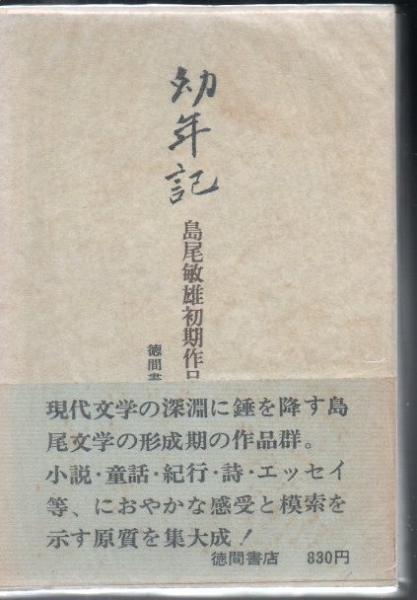 幼年記
島尾敏雄初期作品
徳間書
現代文学の深淵に錘を降す島
尾文学の形成期の作品群。
小説・童話・紀行・詩・エッセイ
等、におやかな感受と模索を
示す原質を集大成!
徳間書店 830円